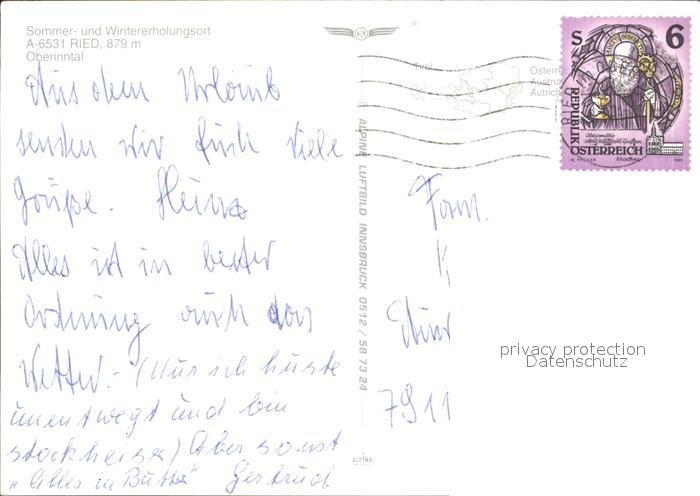 Sommer- und Wintererholungsort
A-6531 RIED, 879 m
Oberinntal
Aus dem Urlaub
senden wir Euch viele
Grüße. Heinz
Alles ist in bester
Ordnung auch das
Wetter.- (Nur ich huste
unentwegt und bin
stockheiser) Aber sonst
"Alles in Butter" Gertrud
ALPINA LUFTBILD INNSBRUCK 0512 / 58 73 24
ALPINA
Tirol
Österre
Austria
Autrich
S 6
REPUBLIK
ÖSTERREICH
1993
Fam.
K
7911
privacy protection
Datenschutz